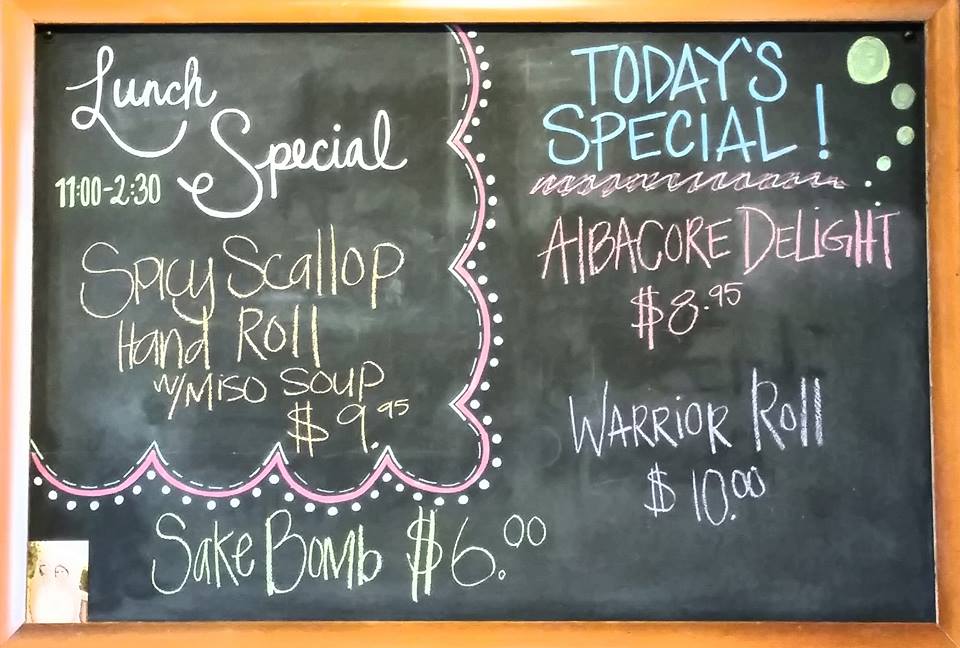 Lunch
Special
11:00-2:30
Spicy Scallop
Hand Roll
w/Miso Soup
$9.95
Sake Bomb $6.00
TODAY'S
SPECIAL!
AlBACORE DELiGHT
$8.95
WARRIOR Roll
$10.00